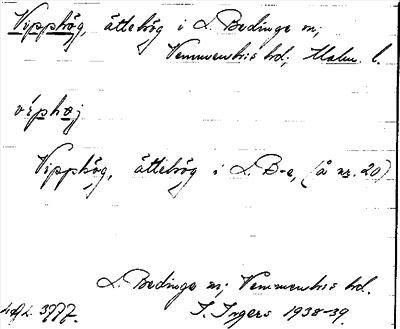 Vipphög, ättehög i L. Bedinge sn;
Vemmenhis hd; Malm. l.
víphøj
Vipphög, ättehög i L. B-e, (å nr. 20)
L. Bedinge sn; Vemmenhis hd.
I. Ingers 1938-39.